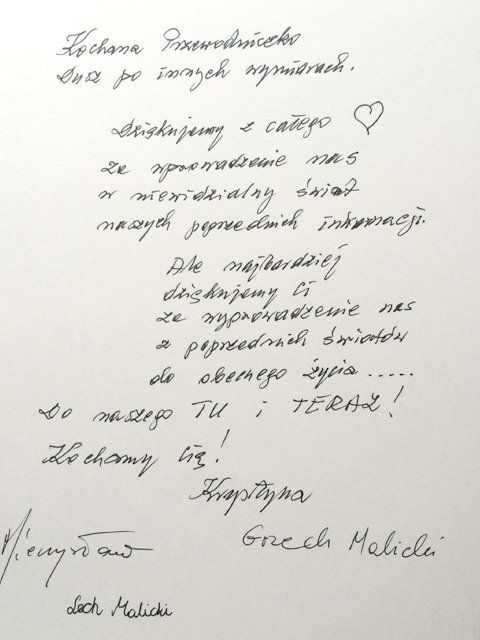 Kochana Przewodniczko
Dusz po innych wymiarach.
Dziękujemy z całego ♡
za wprowadzenie nas
w niewidzialny świat
naszych poprzednich inkarnacji.
Ale najbardziej
dziękujemy Ci
za wyprowadzenie nas
z poprzednich światów
do obecnego życia.....
Do naszego TU i TERAZ!
Kochamy Cię!
Krystyna
Grzech Malicki
Mieczysław
Lech Malicki